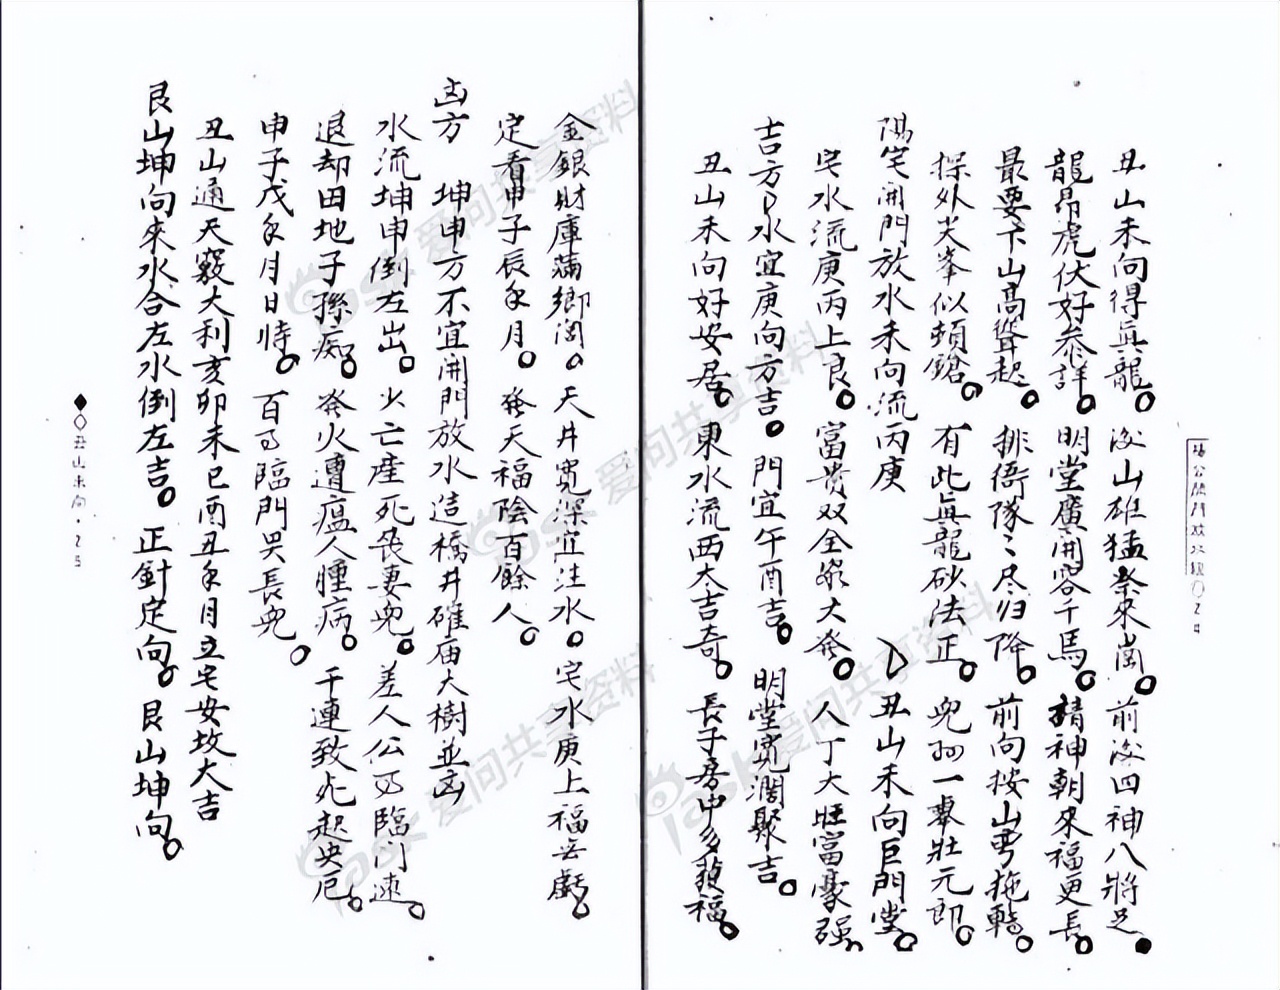 楊公開門放水經○24
丑山未向得真龍。後山雄猛祭來崗。前後四神八將足。
龍昂虎伏好参詳。明堂廣開容千馬。精神朝來福更長。
最要下山高聳起。排衙隊々尽归降。前向按山弯拖轉。
探外尖峯似頓鎗。有此真龍砂法正。兜一舉壯元郎。
陽宅開門放水未向流丙庚
丑山未向巨門堂。
宅水流庚丙上良。富貴双全家大発。人丁大旺富豪强。
吉方水宜庚向方吉。門宜午酉吉。明堂寬濶聚吉。
丑山未向好安居。東水流西大吉奇。長子房中多發福。
金銀財庫滿鄉閭。天井寬深宜注水。宅水庚上福无虧。
定看申子辰年月。發天福陰百餘人。
凶方 坤申方不宜開門放水造橋井碓庙大樹並凶
水流坤申倒左出。少亡產死喪妻兜。差人公臨门速。
退却田地子孫痴。発火遭瘟人腫病。干連致死起央厄。
申子戌年月日時。百臨門哭長兜。
丑山通天竅大利亥卯未巳酉丑年月立宅安坟大吉
艮山坤向來水合左水倒左吉。正針定向。艮山坤向。
◆◇丑山未向·25
iask 爱问共享资料
iask 爱问共享资料
iask 爱问共享资料
iask 爱问共享资料